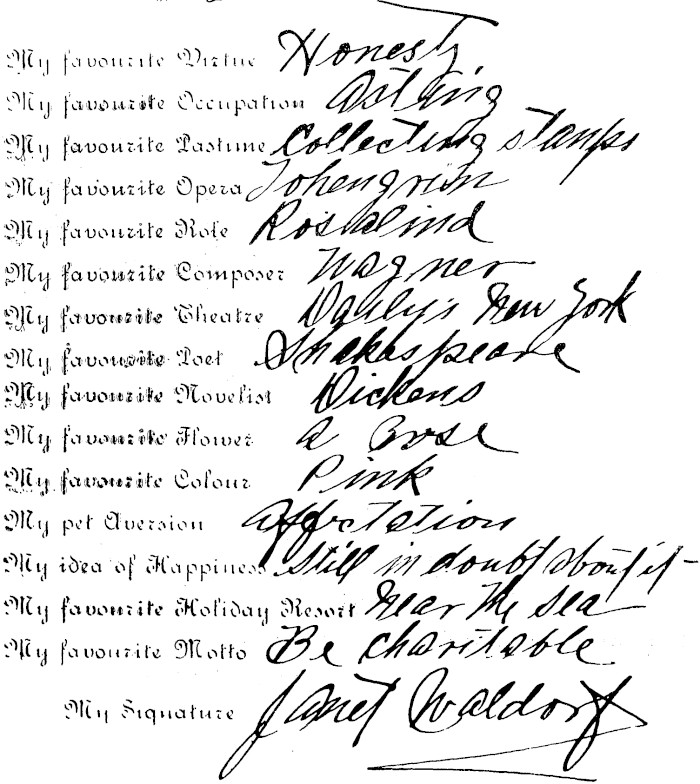 My favourite Virtue Honesty
My favourite Occupation Acting
My favourite Pastime Collecting stamps
My favourite Opera Lohengrin
My favourite Role Rosalind
My favourite Composer Wagner
My favourite Theatre Daly's New York
My favourite Poet Shakespeare
My favourite Novelist Dickens
My favourite Flower a Rose
My favourite Colour Pink
My pet Aversion affectation
My idea of Happiness Still in doubt about it -
My favourite Holiday Resort Near the sea
My favourite Motto Be charitable
My Signature Janet Waldorf